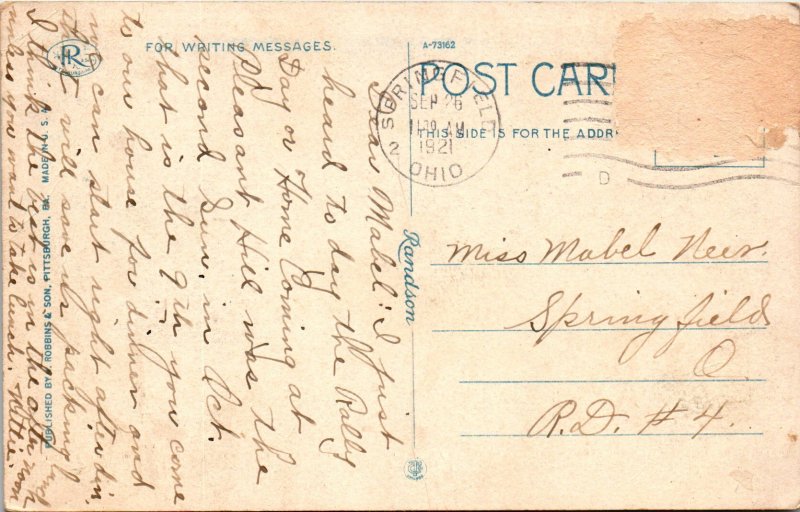 FOR WRITING MESSAGES.
A-73162
POST CAR
THIS SIDE IS FOR THE ADDR
SPRINGFIELD
SEP 26
1130 AM
1921
2
OHIO
D
R
PUBLISHED BY I. ROBBINS & SON, PITTSBURGH, PA. MADE IN U. S. A.
Randson
Dear Mabel: I just
heard to day the Rally
Day or Home Coming at
Pleasant Hill was the
second Sun. in Oct.
that is the 9th you come
to our house for dinner and
we can start right after din.
that will save us packing
I think the best is in the after noon
unless you want to take lunch. Nettie.
Miss Mabel Neer.
Springfield
O
R.D. #4.